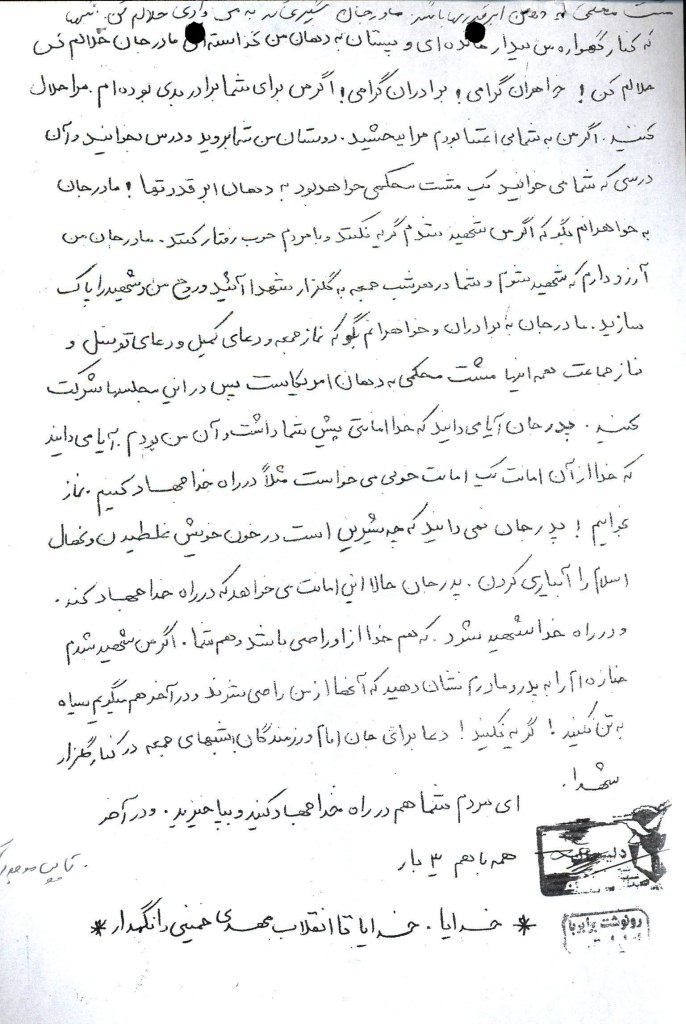 مشت محکمی به دهن ابرقدرتها باشد. مادرجان شیری که به من دادی حلالم کن. شبها
که کنار گهواره من بیدار مانده ای و پستان به دهان من گذاشته ای مادرجان حلالم کن
حلالم کن! خواهران گرامی! برادران گرامی! اگر من برای شما برادر بدی بوده ام. مرا حلال
کنید. اگر من به شما بی اعتنا بودم مرا ببخشید. دوستان من شما بروید و درس بخوانید و آن
درسی که شما می خوانید یک مشت محکمی خواهد بود به دهان ابرقدرتها! مادرجان
به خواهرانم بگو که اگر من شهید شدم گریه نکنند و با مردم خوب رفتار کنند. مادرجان من
آرزو دارم که شهید شوم و شما در هر شب جمعه به گلزار شهدا آئید و روح من و شهید را پاک
سازید. مادرجان به برادران و خواهرانم بگو که نماز جمعه و دعای کمیل و دعای توسل و
نماز جماعت همه اینها مشت محکمی به دهان امریکاست پس در این مجلسها شرکت
کنید. پدرجان آیا می دانید که خدا امانتی پیش شما داشت و آن من بودم. آیا می دانید
که خدا از آن امانت یک امانت خوبی می خواست مثلاً در راه خدا جهاد کنیم. نماز
بخوانیم! پدرجان نمی دانید که چه شیرین است در خون خویش غلطیدن و نهال
اسلام را آبیاری کردن. پدرجان حالا این امانت می خواهد که در راه خدا جهاد کند.
و در راه خدا شهید شود. که هم خدا از او راضی باشد و هم شما. اگر من شهید شدم
جنازه ام را به پدر و مادرم نشان دهید که آنها از من راضی شوند و در آخر هم میگویم سیاه
به تن نکنید! گریه نکنید! دعا برای جان امام و رزمندگان شبهای جمعه در کنار گلزار
شهدا.
ای مردم شما هم در راه خدا جهاد کنید و بپا خیزید. و در آخر
همه با هم ۳ بار
* خدایا. خدایا تا انقلاب مهدی خمینی را نگهدار *
رونوشت برابر با